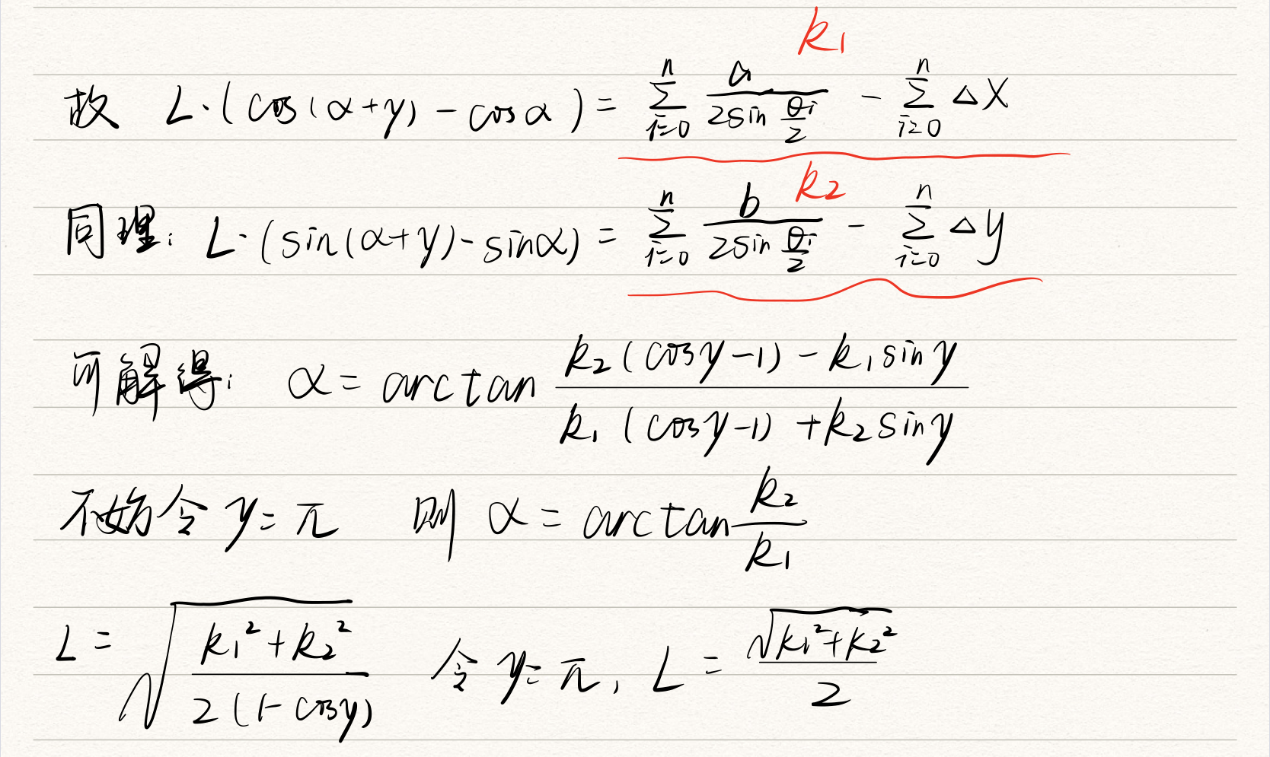 k₁
故 L·(cos(α+y) - cosα) = ∑_{i=0}^{n} a/(2sin(θi/2)) - ∑_{i=0}^{n} ΔX
k₂
同理: L·(sin(α+y) - sinα) = ∑_{i=0}^{n} b/(2sin(θi/2)) - ∑_{i=0}^{n} Δy
可解得: α = arctan (k₂(cosy-1) - k₁siny)/(k₁(cosy-1) + k₂siny)
不妨令 y=π 则 α = arctan k₂/k₁
L = √((k₁²+k₂²)/(2(1-cosy))) 令 y=π, L = √(k₁²+k₂²)/2